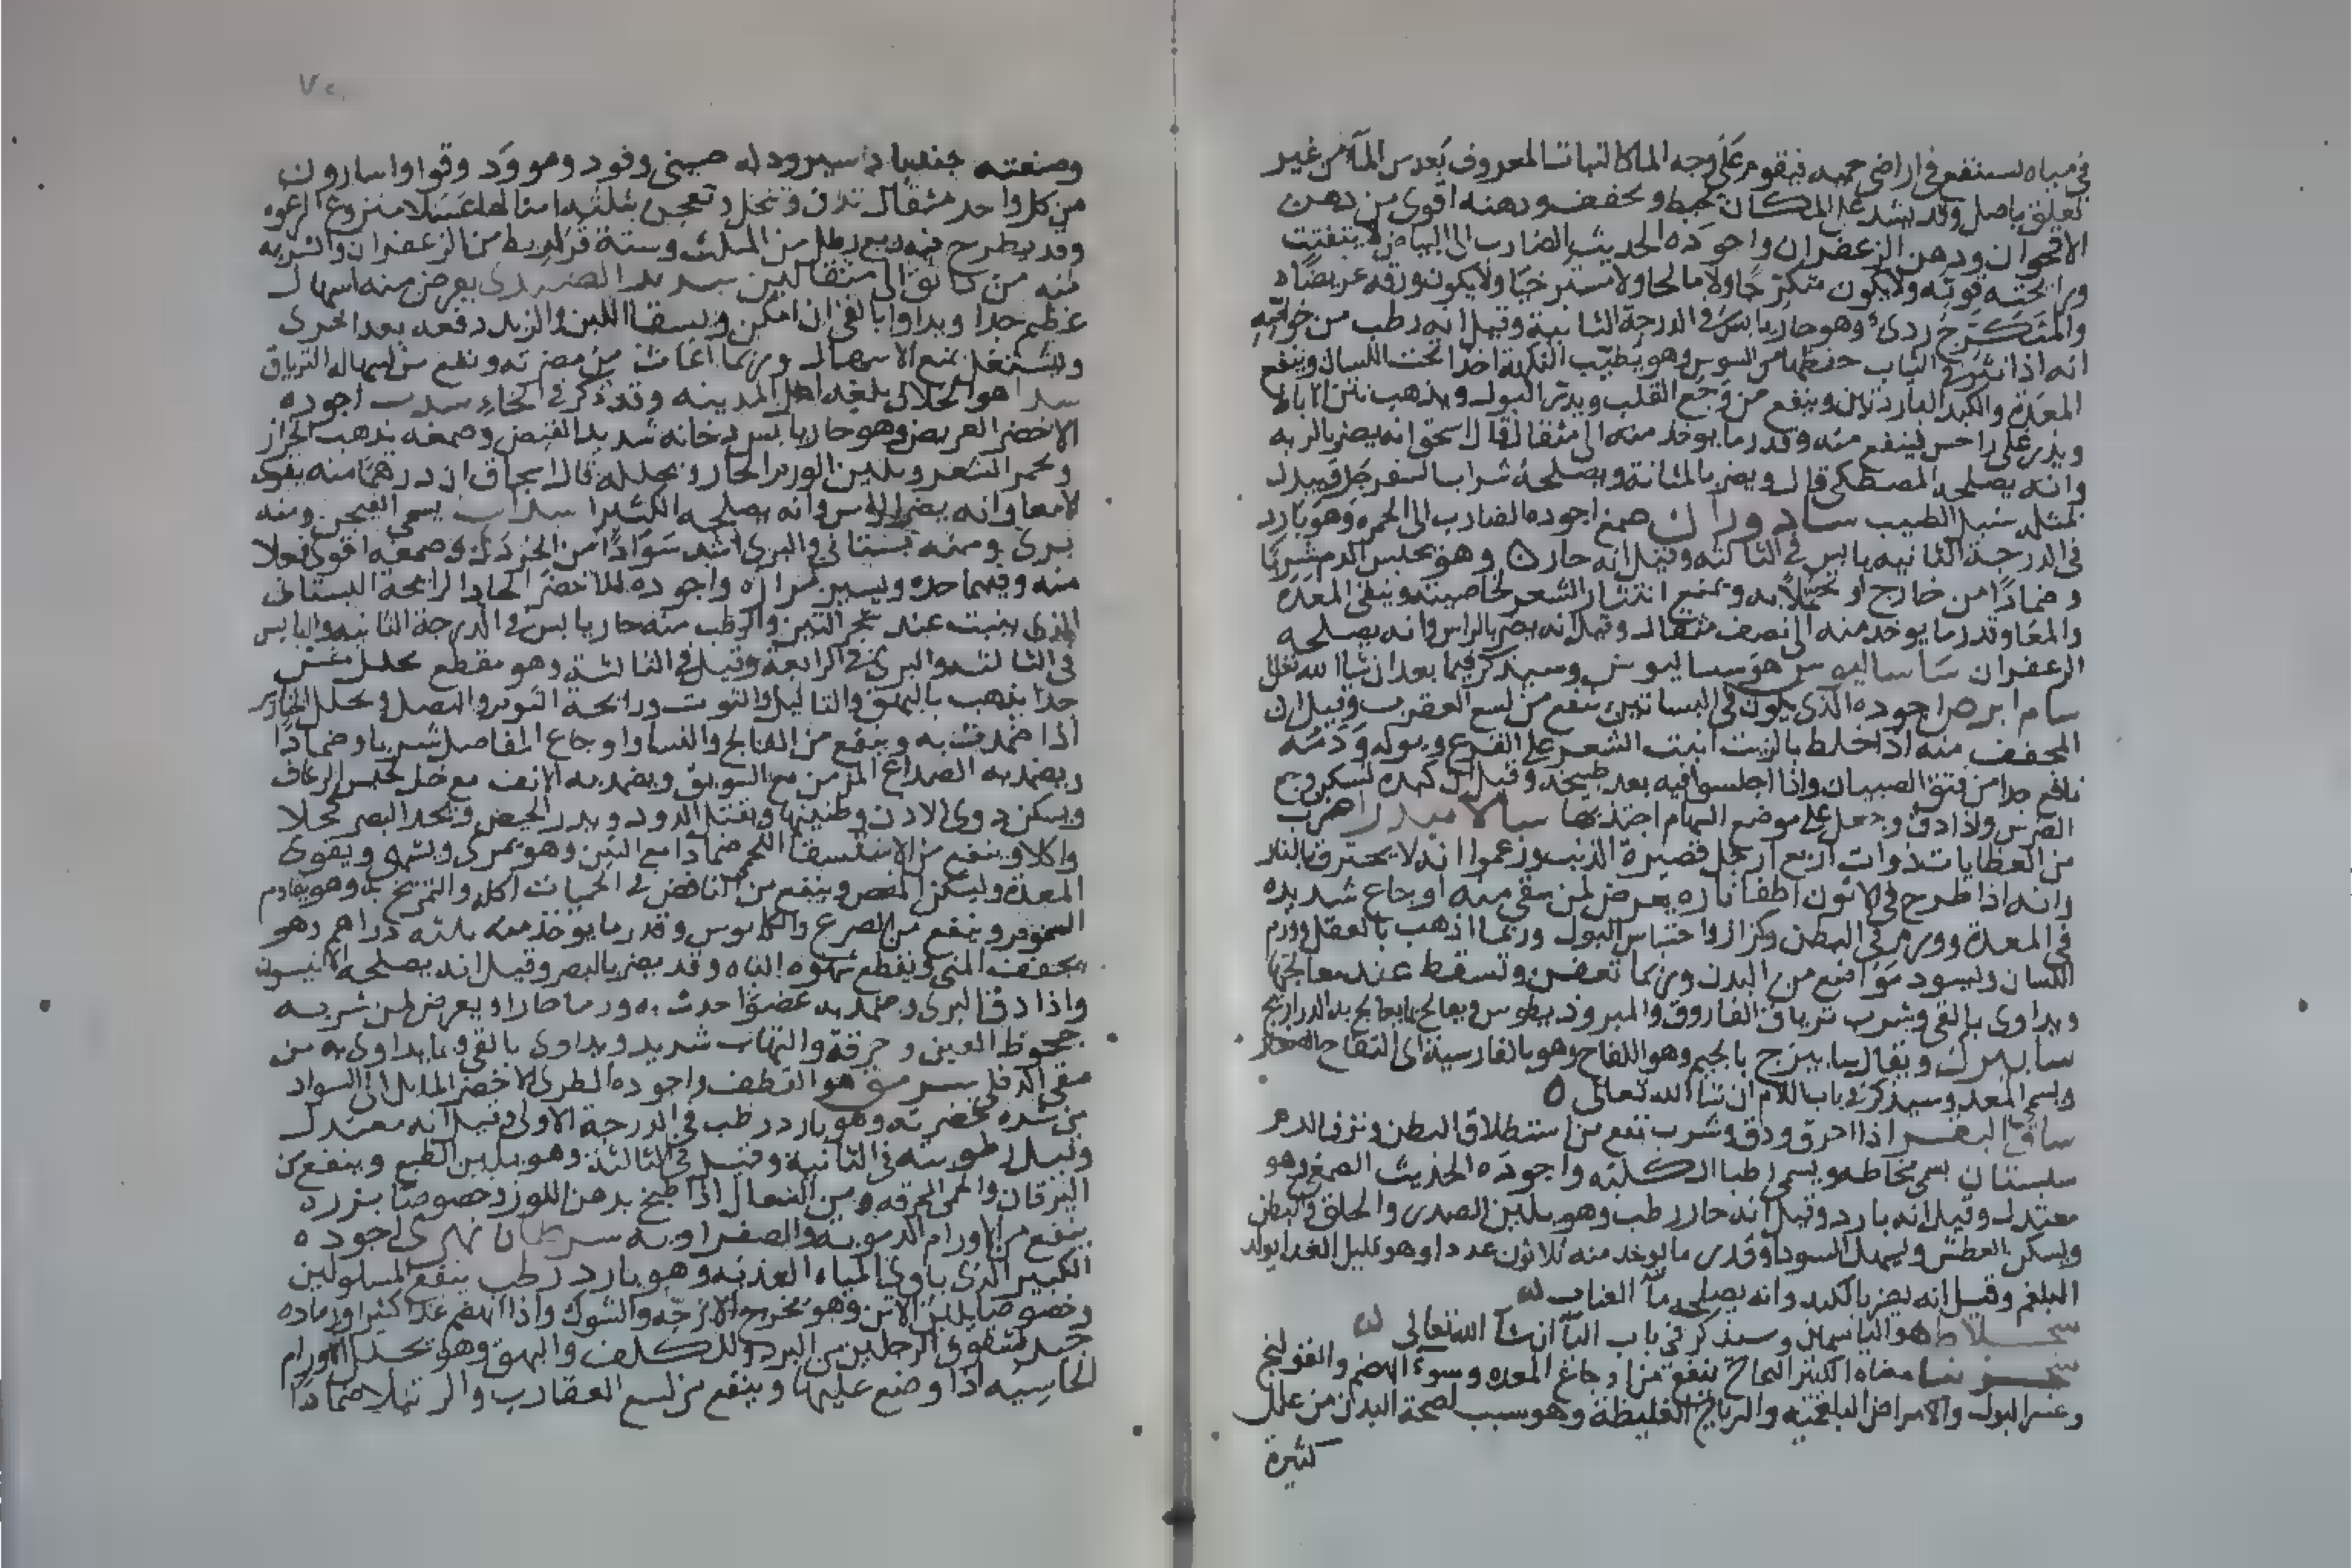 في مياه تستنقع في اراضي حميه فيقوم على وجه الماء كالنبات المعروف بعدس الماء من غير
تعلق باصل وقد يشد على المكان بخيط ويجفف ودهنه اقوى من دهن
الاقحوان ودهن الزعفران واجوده الحديث الضارب الى البياض لا يتفتت
ورائحته قويه ولا يكون متكرجا ولا مالحا ولا مسترخيا ولا يكون ورقه عريضا
والمتكرج ردى وهو حار يابس في الدرجة الثانية وقيل انه رطب من خواصه
انه اذا نثر في الثياب حفظها من السوس وهو يطيب النكهة اخذا تحت اللسان وينفع
المعدة والكبد الباردتين وينفع من وجع القلب ويدر البول ويذهب نتن الاباط
ويذر على داحس فينفع منه وقدر ما يوخذ منه الى مثقال قال اسحق انه يضر بالريه
وانه يصلحه المصطكى قال ويضر بالمثانة ويصلحه شراب السفرجل وبدله
بمثله سنبل الطيب ساذوران صمغ اجوده الضارب الى الحمره وهو بارد
في الدرجة الثانيه يابس في الثالثه وقيل انه حار ه وهو يحبس الدم مشربا
وضمادا من خارج او تحملا به ويمنع انتثار الشعر لخاصيته وينقى المعده
والمعا وقدر ما يوخذ منه الى نصف مثقال وقيل انه يضر بالراس وانه يصلحه
الزعفران ساساليوس هو سساليوس وسيذكر فيما بعد ان شا الله تعالى
سام ابرص اجوده الذى يكون في البساتين ينفع من لسع العقرب وقيل ان
المجفف منه اذا خلط بالزيت انبت الشعر على القرع وبوله ودمه
نافع جدا من فتق الصبيان واذا اجلسوا فيه بعد طبيخه وقيل ان كبده تسكن وجع
الضرس واذا دق وجعل على موضع السهام اجتذبها سالامندرا ضرب
من العظايات ذوات اربع ارجل قصيرة الذنب وزعموا انه لا يحترق بالنار
وانه اذا طرح في الاتون اطفا ناره يعرض لمن سقي منه اوجاع شديده
في المعدة وورم في البطن وكزاز واحتباس البول وربما اذهب بالعقل وورم
اللسان ويسود مواضع من البدن وربما تعفن وتسقط عند معالجتها
ويداوى بالقى وشرب ترياق الفاروق والمبروذيطوس ويعالج بما يعالج به الذراريح
سابيزك ويقال سابيزج بالجيم وهو اللفاح وهو بالفارسية اى التفاح
ويسمى المغد وسيذكر في باب اللام ان شا الله تعالى ه
ساق البقر اذا احرق ودق وشرب نفع من استطلاق البطن ونزف الدم
سبستان يسمى مخاطه ويسمى رطبا الكلبه واجوده الحديث الصمغي وهو
معتدل وقيل انه بارد وقيل انه حار رطب وهو يلين الصدر والحلق والبطن
ويسكن العطش ويسهل السودا وقدر ما يوخذ منه ثلاثون عددا وهو قليل الغذا يولد
البلغم وقيل انه يضر بالكبد وانه يصلحه ماء العناب
سجلاط هو الياسمين وسيذكر في باب اليآ ان شآ الله تعالى
سجزنيا معناه الكثير النجاح نفع من اوجاع المعده وسوء الهضم والقولنج
وعسر البول والامراض البلغميه والرياح الغليظة وهو سبب لصحة البدن من علل
كثيرة
وصنعته جنديادستر ودار صينى وفود ومو ودوقوا واسارون
من كل واحد مثقال تدق وتنخل وتعجن بثلثه امثالها عسلا منزوع الرغوه
وقد يطرح فيه ربع رطل من المثلث وستة قراريط من الزعفران والشربه
منه من دانق الى مثقالين سم يعرض منه اسهال
عظيم جدا ويداوا بالقى ان امكن ويسقا اللبن والزبد دفعه بعد اخرى
ويشتغل بمنع الاسهال وربما اغاث من مضرته ونفع من اسهاله الترياق
سدا هو الخلال بلغه اهل المدينه وقد ذكر في الخاء سذاب اجوده
الاخضر العريض وهو حار يابس دخانه شديد القبض وصمغه يذهب الحزاز
ويحمر الشعر ويلين الورم الحار ويحلله قال اسحاق ان درهما منه يقوى
الامعا وانه يضر بالراس وانه يصلحه الكثيرا سذاب يسمى الفيجن ومنه
برى ومنه بستانى والبرى اشد سوادا من الخردل وصمغه اقوى فعلا
منه وفيهما حده ويسير مراره واجوده الاخضر الحاد الرائحة البستانى
الذى ينبت عند شجر التين والرطب منه حار يابس في الدرجة الثانيه واليابس
في الثالثه والبرى في الرابعة وقيل في الثالثة وهو مقطع محلل مفش
جدا يذهب بالبهق والثاليل والتوت ورائحة الثوم والبصل ويحلل الخنازير
اذا ضمدت به وينفع من الفالج والنسا واوجاع المفاصل شربا وضمادا
ويضمد به الصداع المزمن مع السويق ويضمد به الانف مع خل لحبس الرعاف
ويسكن دوى الاذن وطنينها ويقتل الدود ويدر الحيض ويحد البصر كحلا
واكلا وينفع من الاستسقا اللحمى ضمادا مع التين وهو يمرى ويشهى ويقوى
المعدة ويسكن المغص وينفع من النافض في الحميات اكله والتمريخ به وهو يقاوم
السموم وينفع من الصرع والكابوس وقدر ما يوخذ منه ثلثه دراهم وهو
يجفف المنى ويقطع شهوه الباه وقد يضر بالبصر وقيل انه يصلحه الانيسون
واذا دق البرى وضمد به عضوا احدث به ورما حارا ويعرض لمن شربه
جحوظ العين وحرقة والتهاب شديد ويداوى بالقى وبما يداوى به من
سقي الدفلى سرمق هو القطف واجوده الطرى الاخضر المايل الى السواد
من شده خضرته وهو بارد رطب في الدرجة الاولى وقيل انه معتدل
وقيل رطوبته في الثانية وقيل في الثالثة وهو يلين الطبع وينفع من
اليرقان والحمى المحرقه ومن السعال اذا طبخ بدهن اللوز وخصوصا بزره
ينفع من الاورام الدمويه والصفراويه سرطان نهرى اجوده
الكبير الذى ياوى المياه العذبه وهو بارد رطب ينفع المسلولين
وخصوصا بلبن الاتن وهو يخرج الازجه والشوك واذا انهضم غذا كثيرا ورماده
جيد لشقوق الرجلين من البرد وللكلف والبهق وهو يحلل الاورام
الجاسيه اذا وضع عليها وينفع من لسع العقارب والرتيلا ضمادا